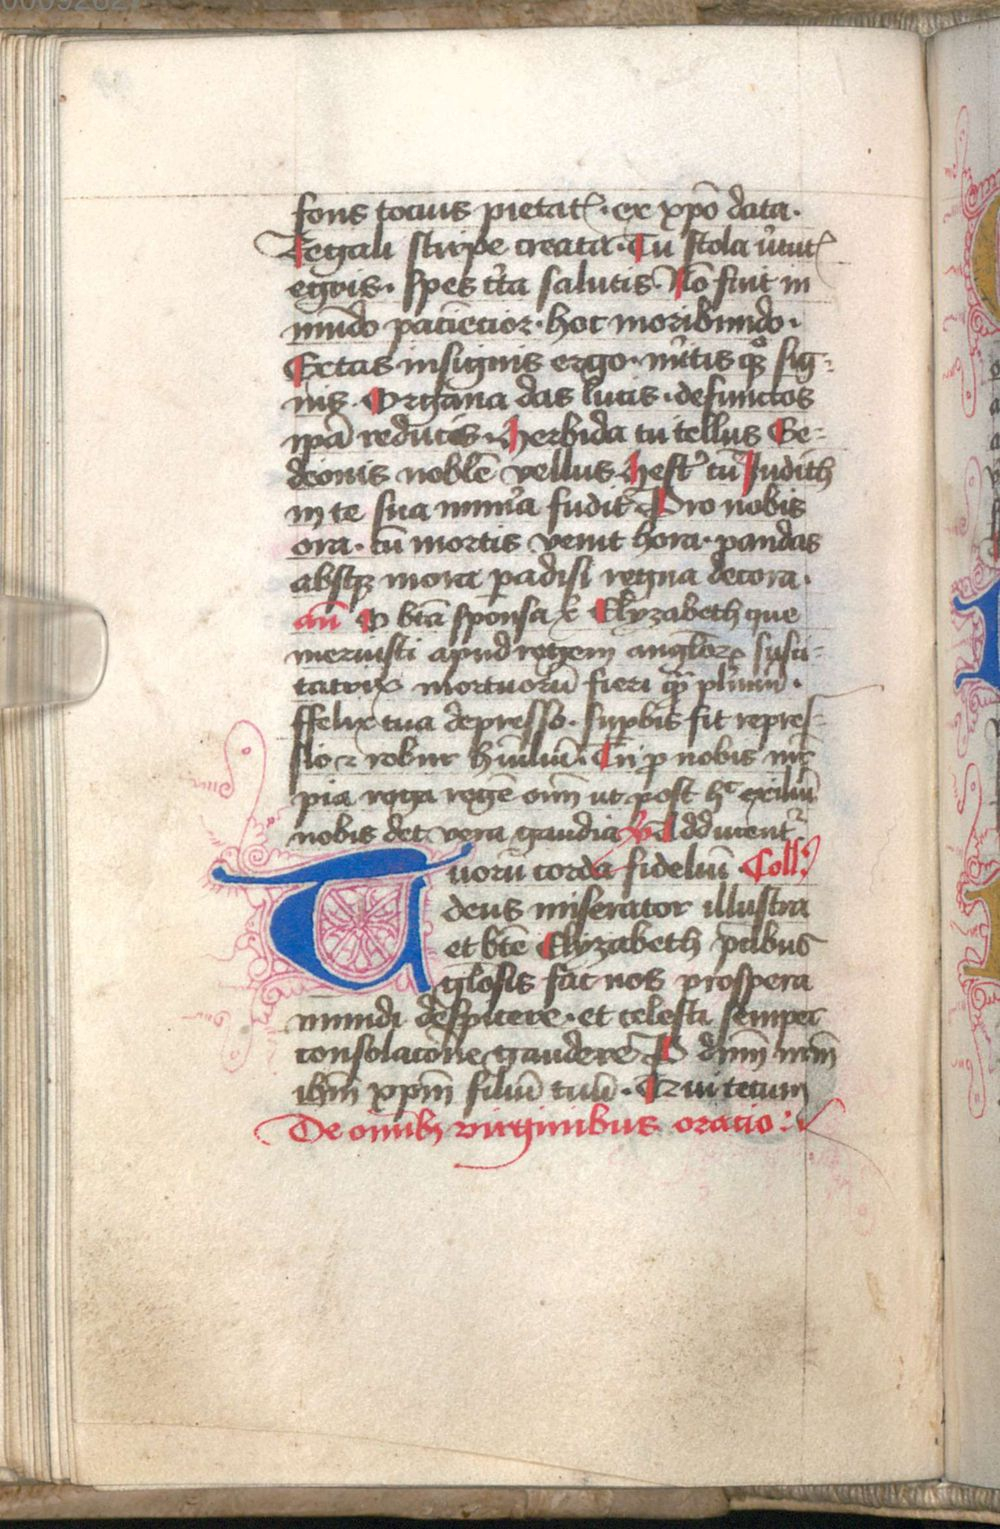 fons tocius pietatꝭ · ex xp̄o data ·
Regali stirpe creata · Tu stola v̓tutꝭ
egris · spes c̓ta salutis · Nō fuit in
mūdo paciēcior · hoc moribundo ·
Extas insignis ergo · m̄ltis qͦꝫ sig-
nis · Organa das lucis · defunctos
ip̄a reducis · Herbida tu tellus Ge-
deonis nobile vellus Hest̓ tū Judith
in te sua mun̓a fudit · Pro nobis
ora · cū mortis venit hora · pandas
absqꝫ mora padisi regna decora ·
an̄ O bt̄a sponsa x̄ Elyzabeth que
meruisti apud regem angloꝝ susci-
tatrix mortuorū fieri ꝙ pl̄imū ·
ffelix tua depressō · supbis fit repres-
sio ⁊ robur hūiliū · Tu ꝓ nobis m̄r
pia roga regē om̄ ut post hᶜ exiliū
nobis det vera gaudia v̄ Adducent᷑
Tuorū corda fideliū Coll̄
deus miserator illustra
et bt̄e Elyzabeth p̄cibus
gl̄osis fac nos prospera
mundi despicere · et celesti semper
consolacōne gaudere P dn̄m nr̄m
ih̄m xp̄m filiū tuū · Qui tecum
De om̄ibꝫ virginibus oracio :